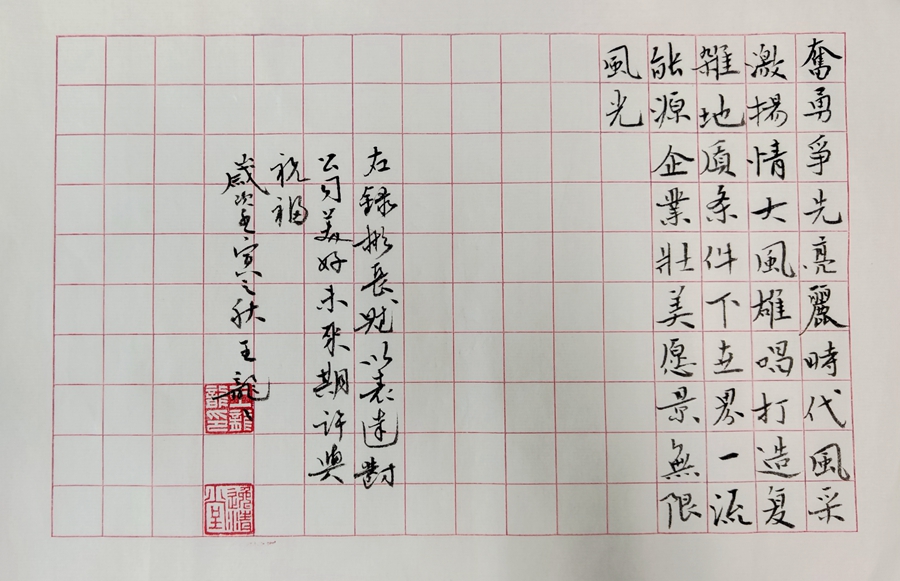 奮勇爭先亮麗時代風采
激揚情大風雄唱打造复
雜地质条件下世界一流
能源企業壯美愿景無限
風光
右録彬長賦以表達對
公司美好未來期許與
祝福
歲次壬寅之秋王龍